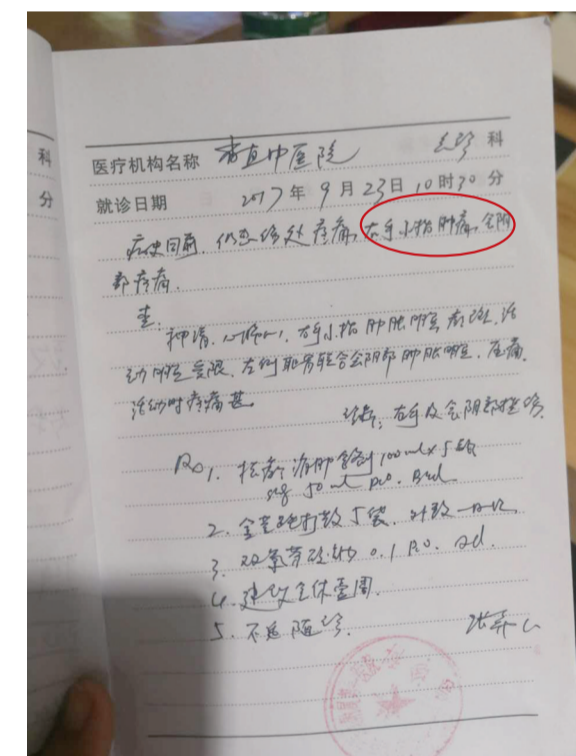 科
分
医疗机构名称 省直中医院 急诊 科
就诊日期 2017年9月23日10时30分
病史同前，仍感伤处疼痛，右手小指肿痛，会阴
部疼痛。
查：
神清，心肺(-)，右手小指肿胀明显，活
动明显受限，左侧耻骨联合会阴部肿胀明显，压痛，
活动时疼痛甚。
诊断：右手及会阴部挫伤
Rp 1. 消肿 100ml×5
50ml p.o. Bid
2. 金黄 散5袋，外敷 一日一次
3. 双氯芬酸钠 0.1 p.o. qd.
4. 建议全休壹周。
5. 不适随诊。